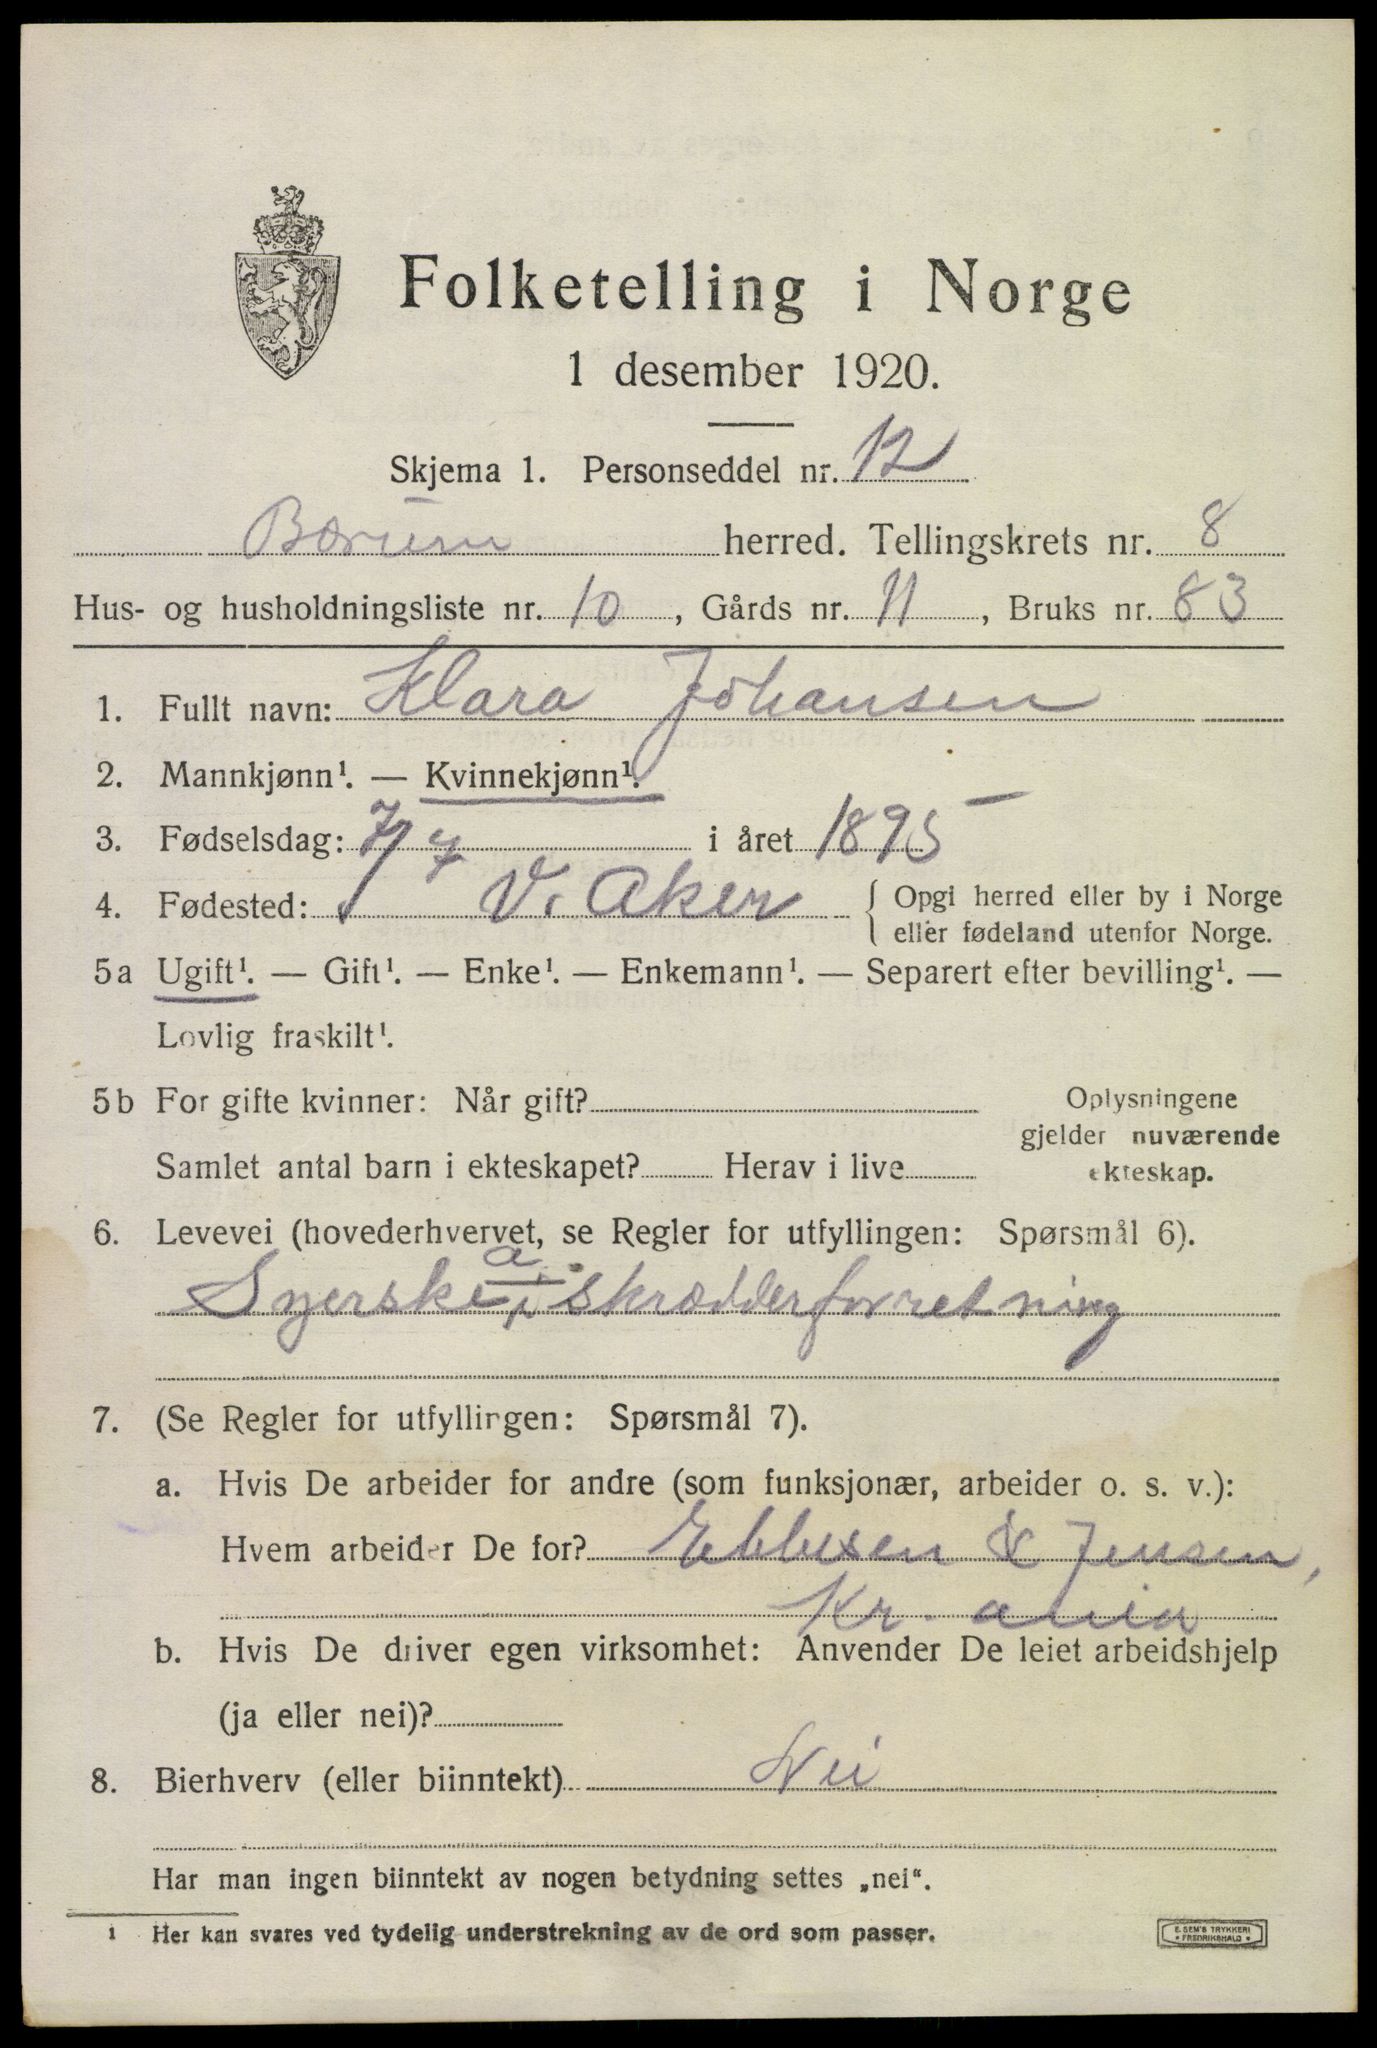 Folketelling i Norge
1 desember 1920.
Skjema 1. Personseddel nr. 12
Bærum herred. Tellingskrets nr. 8
Hus- og husholdningsliste nr. 10, Gårds nr. 11, Bruks nr. 83
1. Fullt navn: Klara Johansen
2. Mannkjønn¹. — Kvinnekjønn¹.
3. Fødselsdag: 7/7 i året 1895
4. Fødested: V. Aker { Opgi herred eller by i Norge
eller fødeland utenfor Norge.
5a Ugift¹. — Gift¹. — Enke¹. — Enkemann¹. — Separert efter bevilling¹. —
Lovlig fraskilt¹.
5b For gifte kvinner: Når gift? Oplysningene
gjelder nuværende
Samlet antal barn i ekteskapet? Herav i live ekteskap.
6. Levevei (hovederhvervet, se Regler for utfyllingen: Spørsmål 6).
Syerske a i skrædderforretning
7. (Se Regler for utfyllingen: Spørsmål 7).
a. Hvis De arbeider for andre (som funksjonær, arbeider o. s. v.):
Hvem arbeider De for? Ebbesen & Jensen,
Kr.ania
b. Hvis De driver egen virksomhet: Anvender De leiet arbeidshjelp
(ja eller nei)?
8. Bierhverv (eller biinntekt) Nei
Har man ingen biinntekt av nogen betydning settes „nei“.
1 Her kan svares ved tydelig understrekning av de ord som passer.
E. SEM'S TRYKKERI
• FREDRIKSHALD •